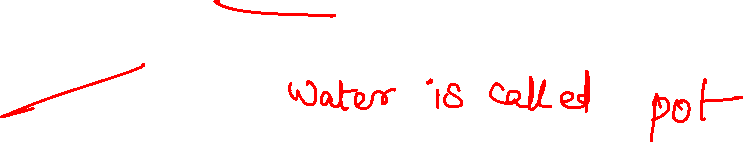 water is called pot